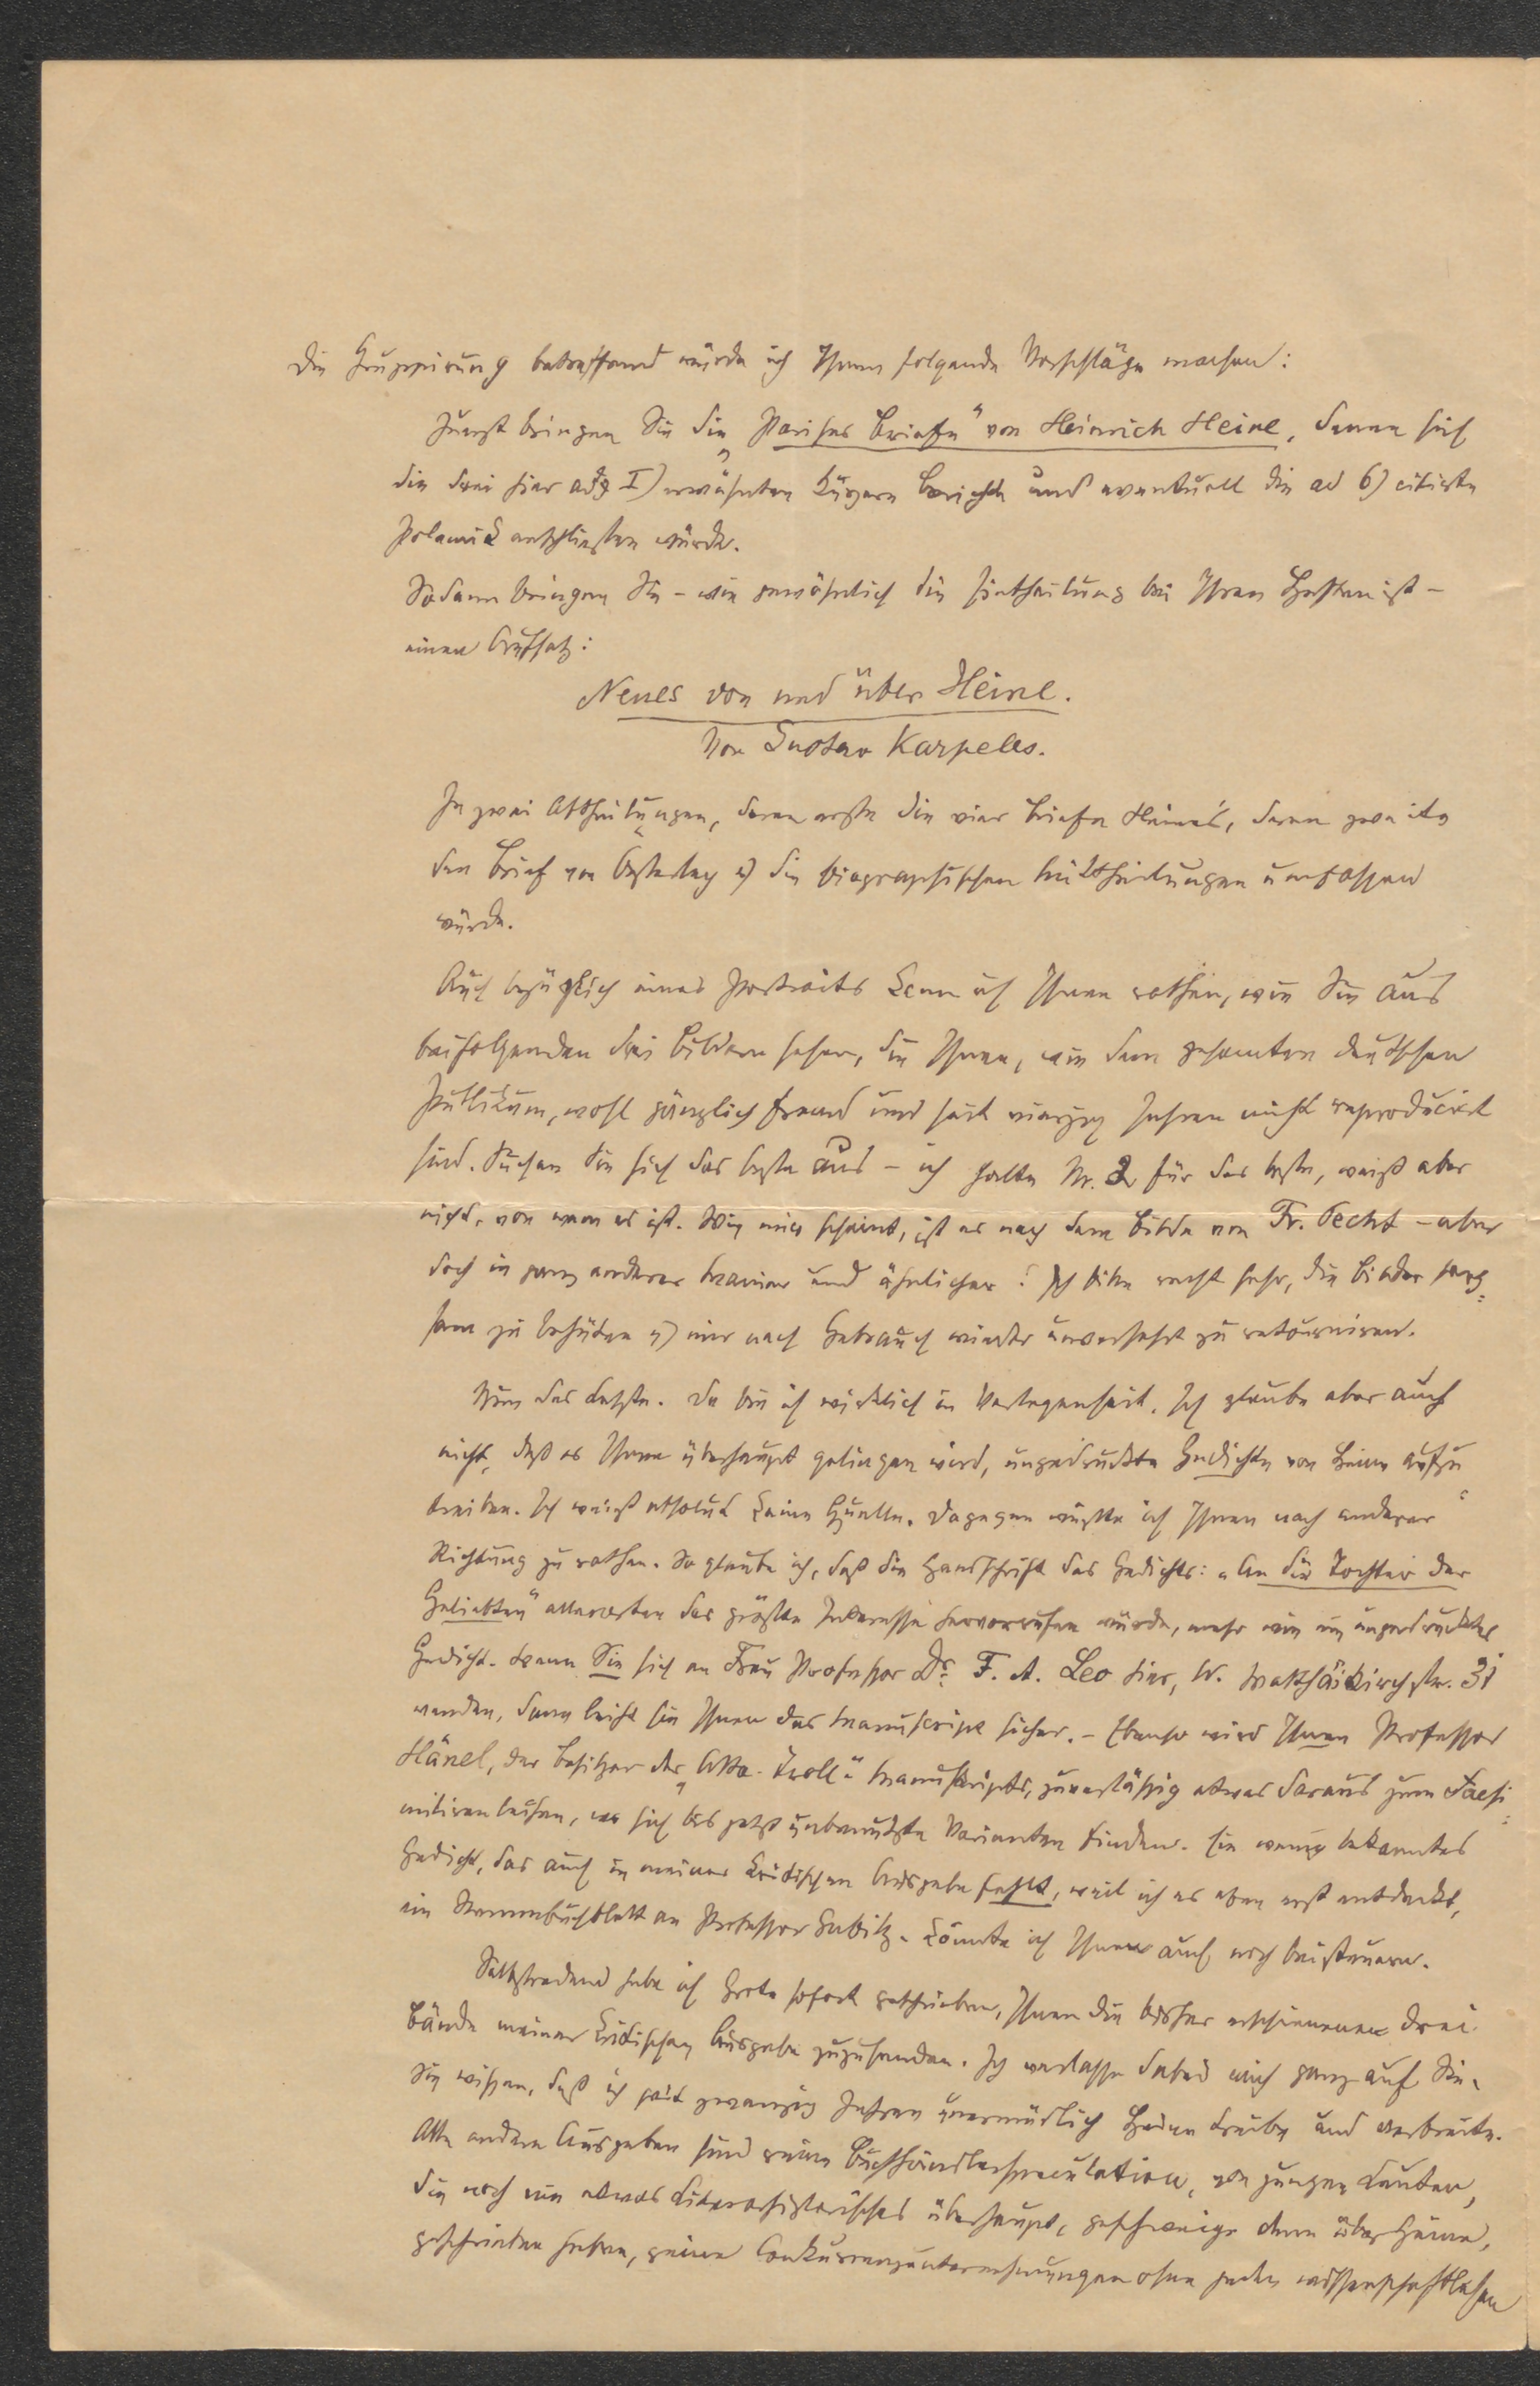 Die Gruppirung betreffend würde ich Ihnen folgende Vorschläge machen:
Zuerst bringen Sie die „Pariser Briefe" von Heinrich Heine, denen sich
die drei hier ad I) erwähnten kürzern Berichte und eventuell die ad 6) citirte
Polemik anschließen würde.
Sodann bringen Sie – wie gewöhnlich die Eintheilung bei Ihren Heften ist –
einen Aufsatz:
Neues von und über Heine.
Von Gustav Karpeles.
In zwei Abtheilungen, deren erste die vier Briefe Heine's, deren zweite
den Brief von u) die biographischen Mittheilungen umfassen
würde.
Auch bezüglich eines Portraits kann ich Ihnen rathen, wie Sie aus
beifolgenden drei Bildern sehen, die Ihnen, wie dem gesamten deutschen
Publikum, wohl gänzlich fremd und seit vierzig Jahren nicht reproducirt
sind. Suchen Sie sich das beste aus – ich halte Nr. 2 für das beste, weiß aber
nicht, von wem es ist. Wie mir scheint, ist es nach dem Bilde von Fr. Pecht – aber
doch in ganz anderer Manier und ähnlicher! Ich bitte recht sehr, die Bilder sorg=
sam zu behüten u) mir nach Gebrauch wieder unversehrt zu retourniren.
Nun das Letzte. Da bin ich wirklich in Verlegenheit. Ich glaube aber auch
nicht, daß es Ihnen überhaupt gelingen wird, ungedruckte Gedichte von Heine aufzu=
treiben. Ich weiß absolut keine Quelle. Dagegen wüßte ich Ihnen nach anderer
Richtung zu rathen. So glaube ich, daß die Handschrift des Gedichts: „An die Tochter der
Geliebten" allerorten das größte Interesse hervorrufen würde, mehr wie ein ungedrucktes
Gedicht. Wenn Sie sich an Frau Professor Dr. F. A. Leo hier, W. Matthäikirchstr. 31
wenden, dann leiht sie Ihnen das Manuscript sicher. – Ebenso wird Ihnen Professor
Hänel, der Besitzer des „Atta-Troll"-Manuskripts, zuverlässig etwas daraus zum Facsi=
miliren leihen, wo sich bis jetzt unbenutzte Varianten finden. Ein wenig bekanntes
Gedicht, das auch in meiner kritischen Ausgabe fehlt, weil ich es eben erst entdeckt,
ein Stammbuchblatt an Professor Gubitz, könnte ich Ihnen auch noch beisteuern.
Selbstredend habe ich Grote sofort geschrieben, Ihnen die bisher erschienenen drei
Bände meiner kritischen Ausgabe zuzusenden. Ich verlasse dabei mich ganz auf Sie.
Sie wissen, daß ich seit zwanzig Jahren unermüdlich Heine treibe und verbreite.
Alle andern Ausgaben sind reine Buchhändlerspeculation, von jungen Leuten,
die noch nie etwas Literarhistorisches überhaupt, geschweige denn über Heine,
geschrieben haben, reine Conkurrenzunternehmungen ohne jeden wissenschaftlichen